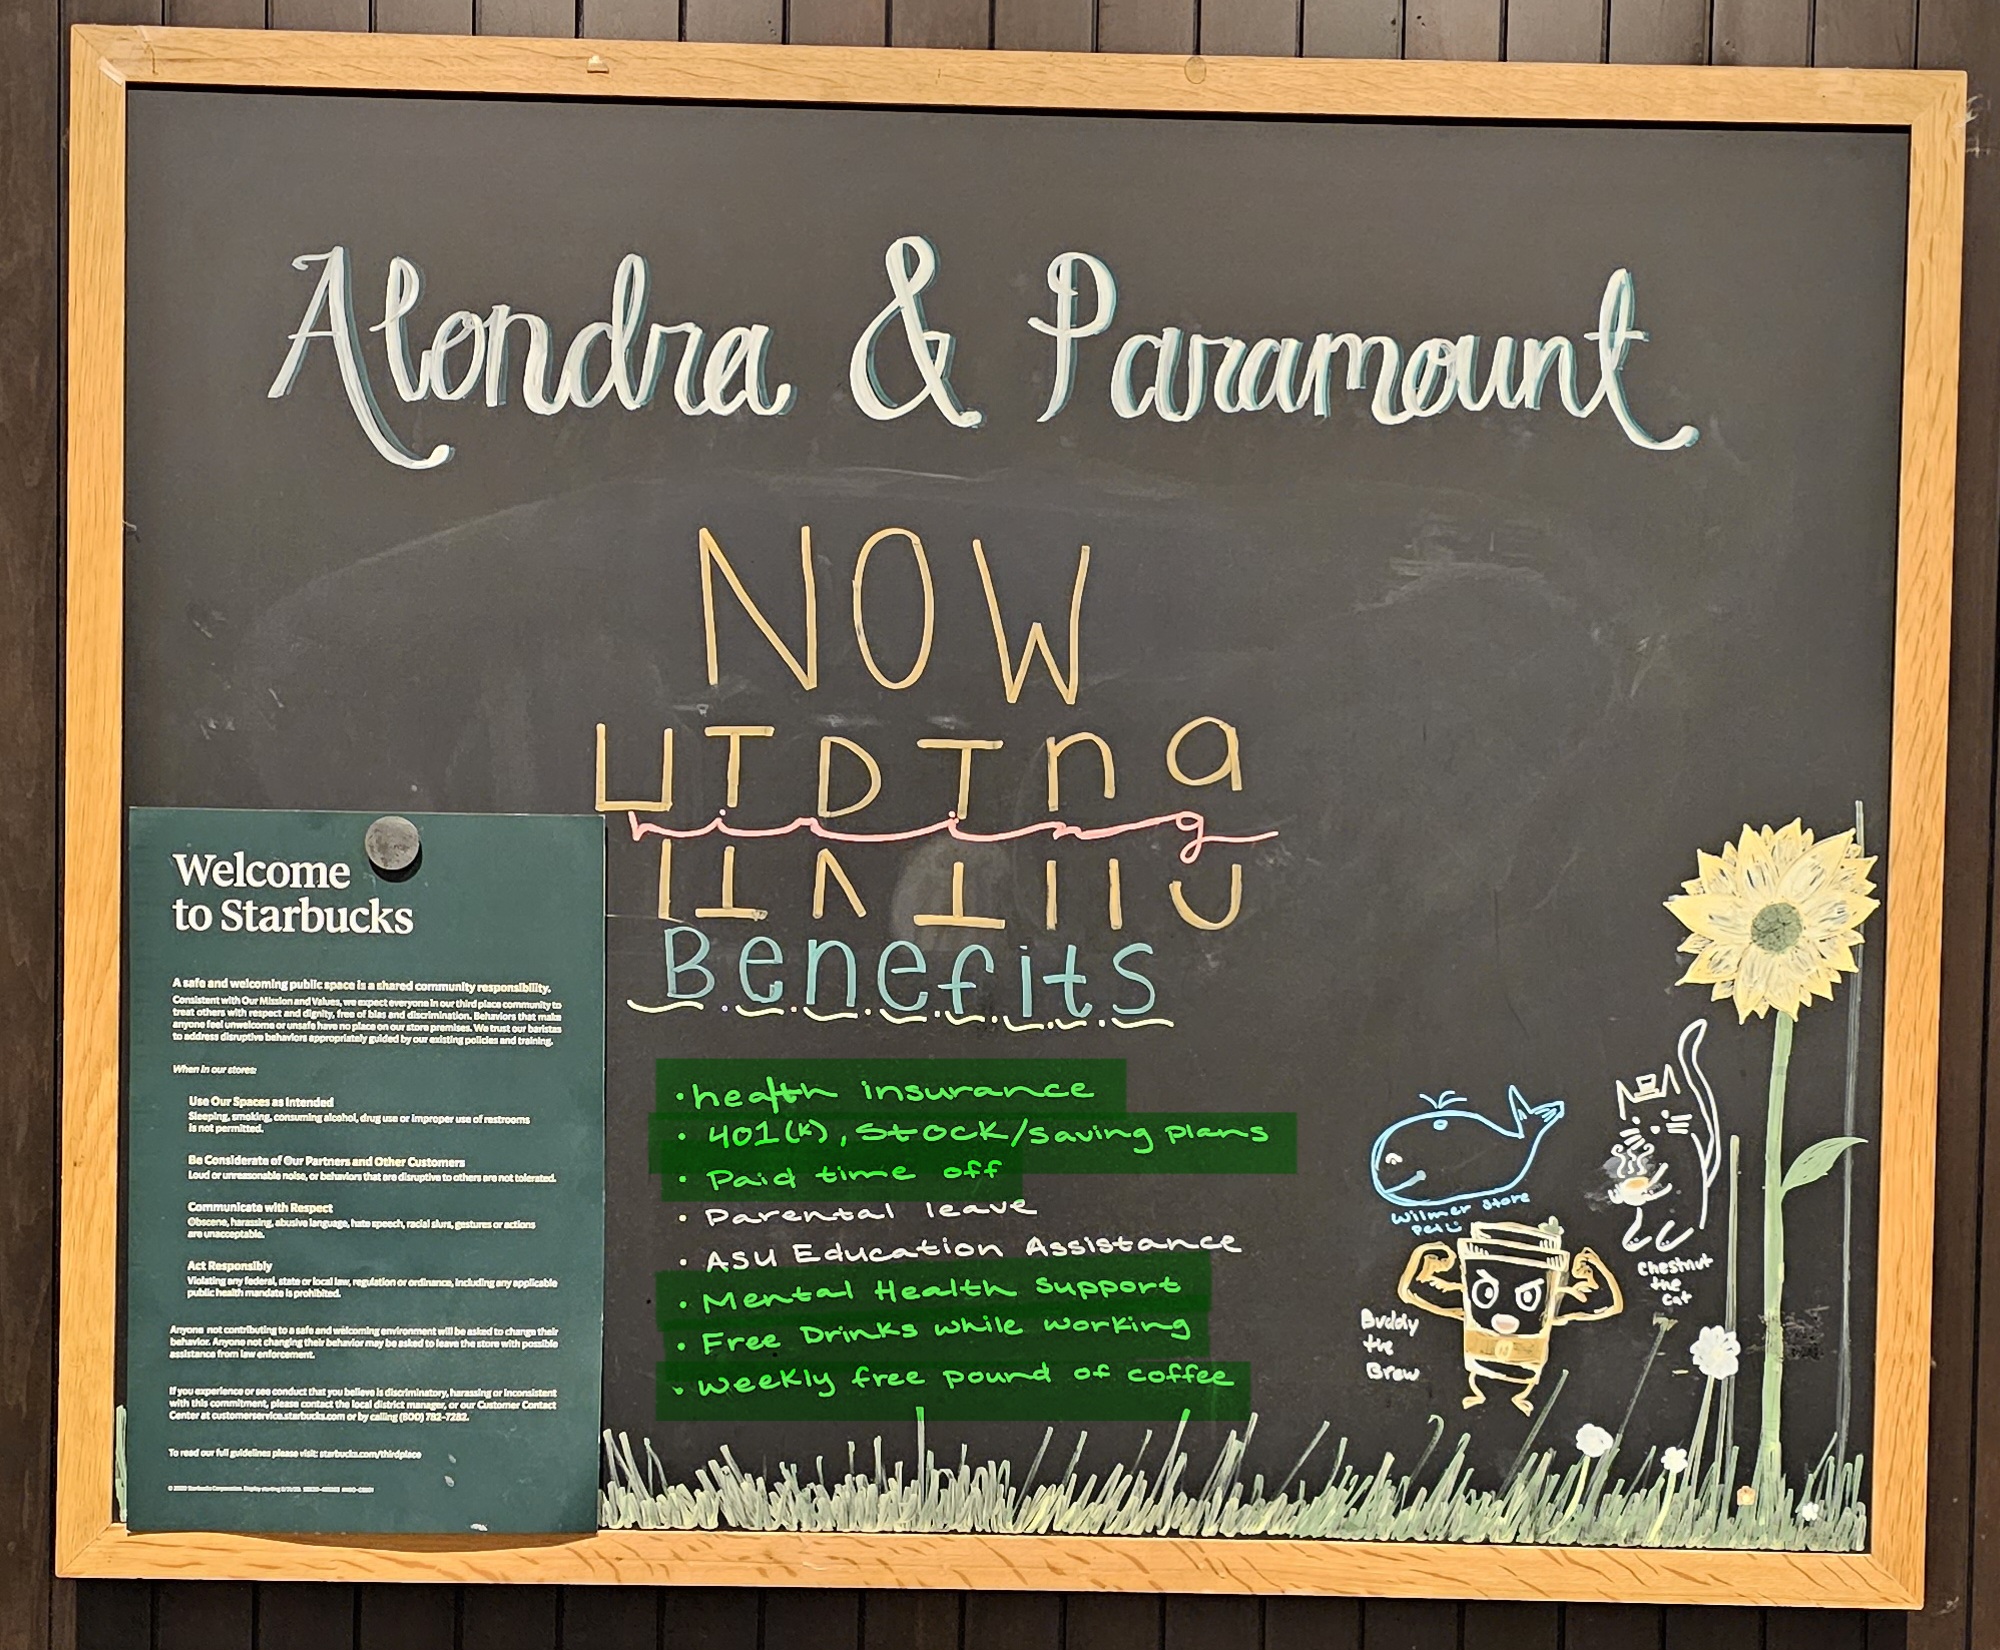 Alondra & Paramount
NOW
HIRING
hiring
Benefits
• health insurance
• 401(k), Stock/saving plans
• Paid time off
• Parental leave
• ASU Education Assistance
• Mental Health Support
• Free Drinks while working
• Weekly free pound of coffee
Welcome
to Starbucks
A safe and welcoming public space is a shared community responsibility.
Consistent with Our Mission and Values, we expect everyone in our third place community to
treat others with respect and dignity, free of bias and discrimination. Behaviors that make
anyone feel unwelcome or unsafe have no place on our store premises. We trust our baristas
to address disruptive behaviors appropriately guided by our existing policies and training.
When in our stores:
Use Our Spaces as Intended
Sleeping, smoking, consuming alcohol, drug use or improper use of restrooms
is not permitted.
Be Considerate of Our Partners and Other Customers
Loud or unreasonable noise, or behaviors that are disruptive to others are not tolerated.
Communicate with Respect
Obscene, harassing, abusive language, hate speech, racial slurs, gestures or actions
are unacceptable.
Act Responsibly
Violating any federal, state or local law, regulation or ordinance, including any applicable
public health mandate is prohibited.
Anyone not contributing to a safe and welcoming environment will be asked to change their
behavior. Anyone not changing their behavior may be asked to leave the store with possible
assistance from law enforcement.
If you experience or see conduct that you believe is discriminatory, harassing or inconsistent
with this commitment, please contact the local district manager, or our Customer Contact
Center at customerservice.starbucks.com or by calling (800) 782-7282.
To read our full guidelines please visit: starbucks.com/thirdplace
Starbucks Corporation.
Wilmer Store
Pet
Chestnut
the
Cat
Buddy
the
Brew